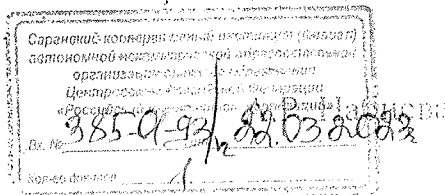 Саранский кооперативный институт (филиал)
автономной некоммерческой образовательной
организации высшего образования
Центросоюза Российской Федерации
«Российский университет кооперации»
Вх. № 385-01-93/ 22.03.2023
Кол-во листов 1